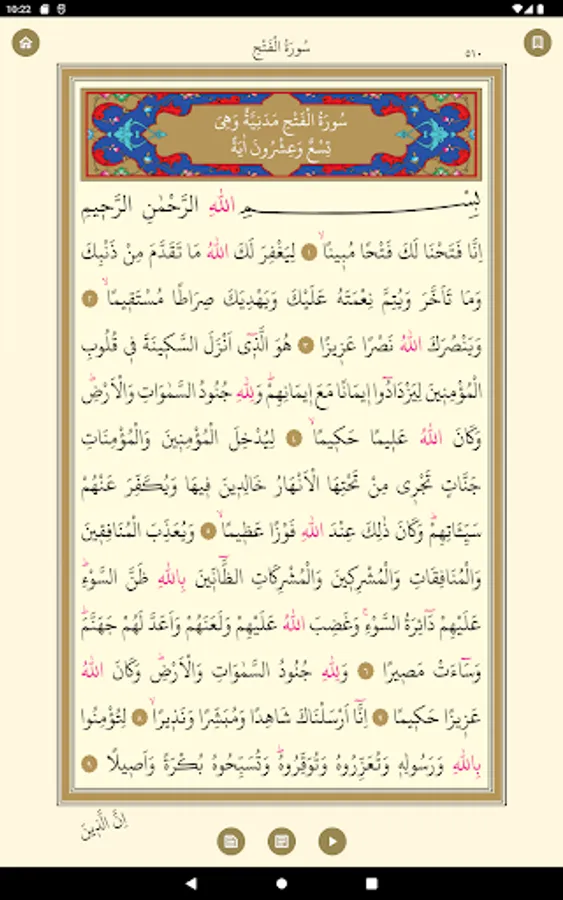 10:22
سُورَةُ الْفَتْحِ
٥١٠
سُورَةُ الْفَتْحِ مَدَنِيَّةٌ وَهِىَ
تِسْعٌ وَعِشْرُونَ اٰيَةً
بِسْمِ اللّٰهِ الرَّحْمٰنِ الرَّح۪يمِ
اِنَّا فَتَحْنَا لَكَ فَتْحًا مُب۪ينًاۙ ﴿١﴾ لِيَغْفِرَ لَكَ اللّٰهُ مَا تَقَدَّمَ مِنْ ذَنْبِكَ
وَمَا تَاَخَّرَ وَيُتِمَّ نِعْمَتَهُ عَلَيْكَ وَيَهْدِيَكَ صِرَاطًا مُسْتَق۪يمًاۙ ﴿٢﴾
وَيَنْصُرَكَ اللّٰهُ نَصْرًا عَز۪يزًا ﴿٣﴾ هُوَ الَّذ۪ٓى اَنْزَلَ السَّك۪ينَةَ ف۪ى قُلُوبِ
الْمُؤْمِن۪ينَ لِيَزْدَادُٓوا ا۪يمَانًا مَعَ ا۪يمَانِهِمْۜ وَلِلّٰهِ جُنُودُ السَّمٰوَاتِ وَالْاَرْضِۜ
وَكَانَ اللّٰهُ عَل۪يمًا حَك۪يمًاۙ ﴿٤﴾ لِيُدْخِلَ الْمُؤْمِن۪ينَ وَالْمُؤْمِنَاتِ
جَنَّاتٍ تَجْر۪ى مِنْ تَحْتِهَا الْاَنْهَارُ خَالِد۪ينَ ف۪يهَا وَيُكَفِّرَ عَنْهُمْ
سَيِّـَٔاتِهِمْۜ وَكَانَ ذٰلِكَ عِنْدَ اللّٰهِ فَوْزًا عَظ۪يمًاۙ ﴿٥﴾ وَيُعَذِّبَ الْمُنَافِق۪ينَ
وَالْمُنَافِقَاتِ وَالْمُشْرِك۪ينَ وَالْمُشْرِكَاتِ الظَّٓانّ۪ينَ بِاللّٰهِ ظَنَّ السَّوْءِۜ
عَلَيْهِمْ دَٓائِرَةُ السَّوْءِۚ وَغَضِبَ اللّٰهُ عَلَيْهِمْ وَلَعَنَهُمْ وَاَعَدَّ لَهُمْ جَهَنَّمَۜ
وَسَٓاءَتْ مَص۪يرًا ﴿٦﴾ وَلِلّٰهِ جُنُودُ السَّمٰوَاتِ وَالْاَرْضِۜ وَكَانَ اللّٰهُ
عَز۪يزًا حَك۪يمًا ﴿٧﴾ اِنَّٓا اَرْسَلْنَاكَ شَاهِدًا وَمُبَشِّرًا وَنَذ۪يرًاۙ ﴿٨﴾ لِتُؤْمِنُوا
بِاللّٰهِ وَرَسُولِه۪ وَتُعَزِّرُوهُ وَتُوَقِّرُوهُۜ وَتُسَبِّحُوهُ بُكْرَةً وَاَص۪يلًا ﴿٩﴾
اِنَّ الَّذ۪ينَ